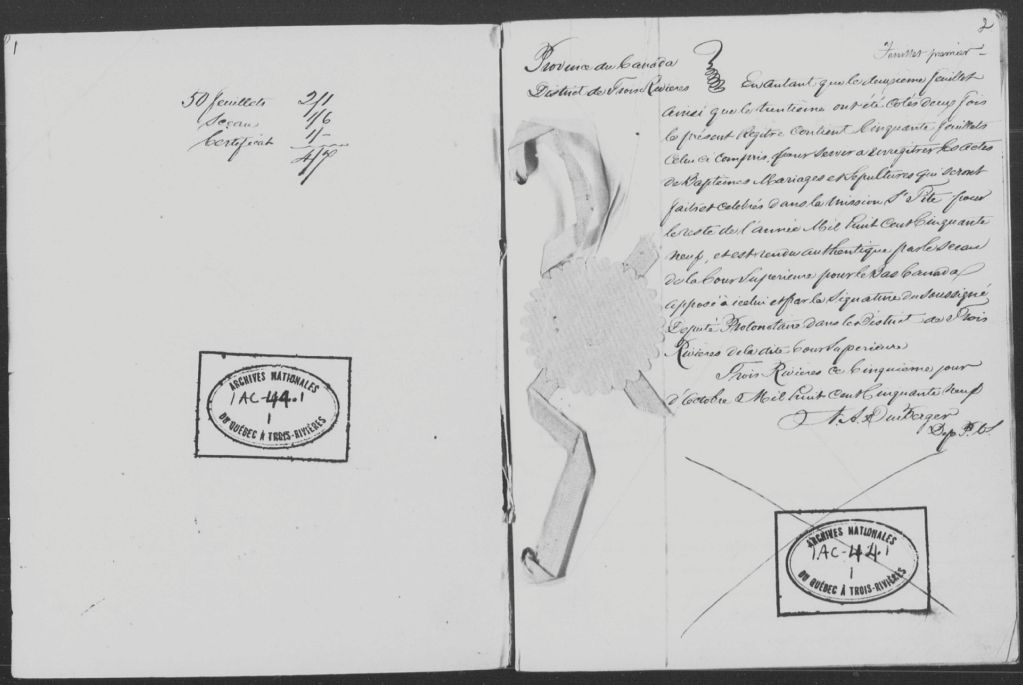 1
50 feuillets 2/1
Sceau 1/6
Certificat 1/-
4/7
ARCHIVES NATIONALES
1AC-44.1
1
DU QUÉBEC À TROIS-RIVIÈRES
2
Feuillet premier
Province du Canada
District de Trois Rivieres
En autant que le deuxieme feuillet
ainsi que le trentieme ont été cotés deux fois
le présent Régitre contient Cinquante feuillets
celui ci compris, pour servir a enregitrer les actes
de Baptêmes Mariages et Sepultures qui seront
faits et celebrés dans la Mission St Pite pour
le reste de l'année Mil huit Cent Cinquante
neuf, et est rendu authentique par le Sceau
de la Cour Superieure pour le Bas Canada
apposé à icelui et par la Signature du Soussigné
Député Protonotaire dans le District de Trois
Rivieres de la dite Cour Superieure
Trois Rivieres ce Cinquieme jour
d'Octobre Mil huit Cent Cinquante neuf
Dep P.
ARCHIVES NATIONALES
1AC-44.1
1
DU QUÉBEC À TROIS-RIVIÈRES